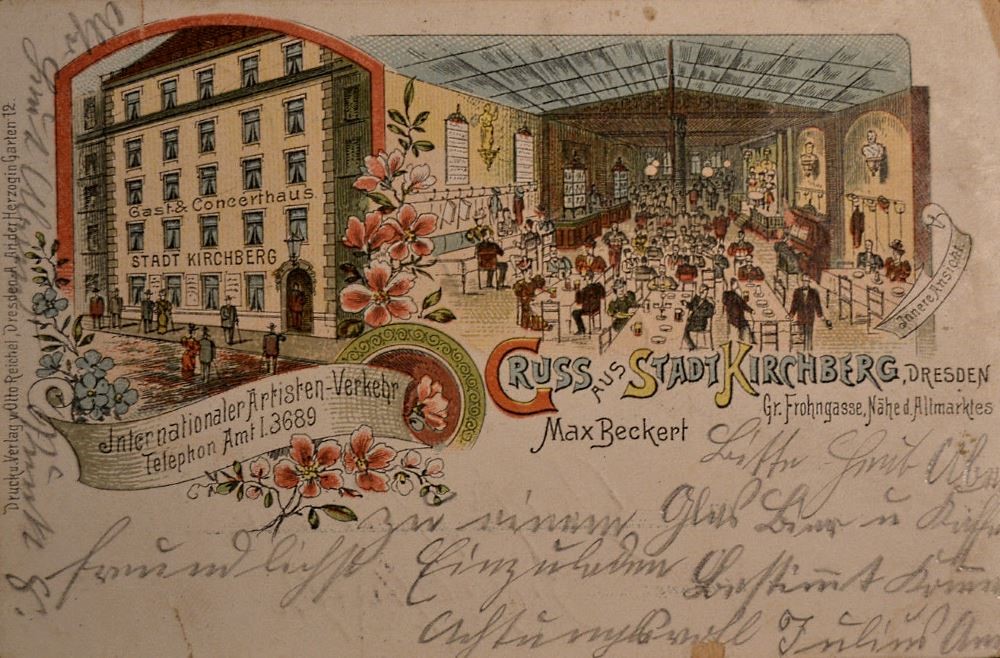 Gast.& Concerthaus.
STADT KIRCHBERG
Innere Ansicht.
Internationaler Artisten-Verkehr
Telephon Amt I.3689
GRUSS AUS STADT KIRCHBERG, DRESDEN
Gr. Frohngasse, Nähe d. Altmarktes
Max Beckert
Druck u. Verlag v. Otto Reichel, Dresden-A. An der Herzogin Garten 12.
Bitte Heut
zu einem Glas Bier u
freundlichst Einzuladen Bestimmt
Achtungsvoll Julius